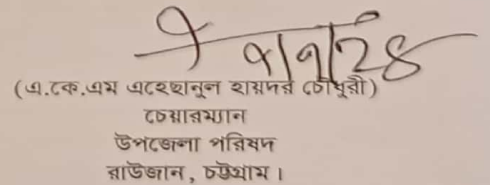 ৭/৭/২৪
(এ.কে.এম এহেছানুল হায়দর চৌধুরী)
চেয়ারম্যান
উপজেলা পরিষদ
রাউজান, চট্টগ্রাম।